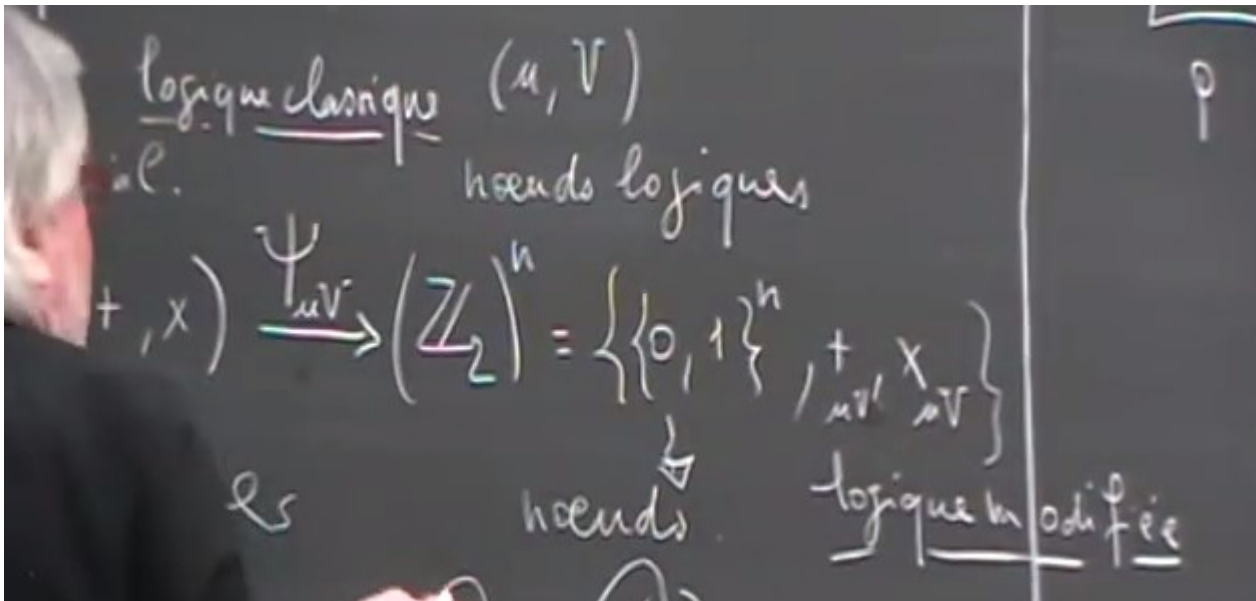 logique classique (u, V)
p
noeuds logiques
+, x) Ψ_uV → (ℤ_2)^n = {{0, 1}^n, +_uV, x_uV}
es noeuds. logique modifiée